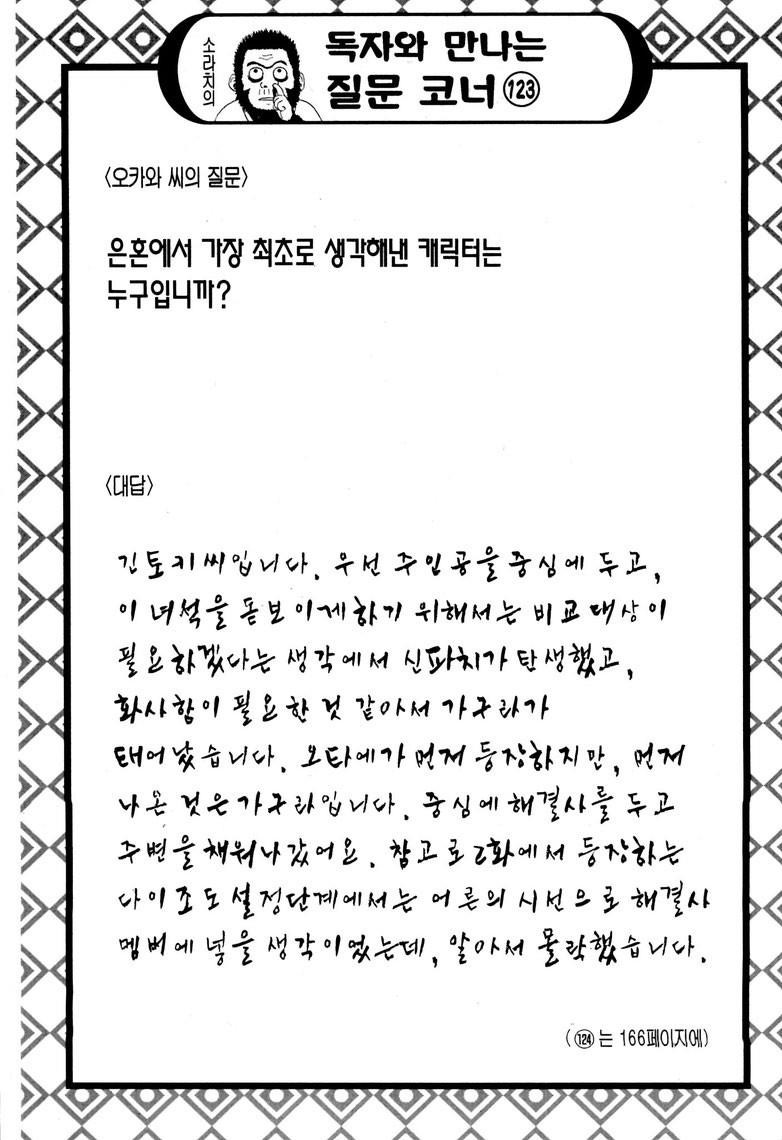 소라치의
독자와 만나는
질문 코너 123
<오카와 씨의 질문>
은혼에서 가장 최초로 생각해낸 캐릭터는
누구입니까?
<대답>
긴토키씨입니다. 우선 주인공을 중심에 두고,
이 녀석을 돋보이게하기 위해서는 비교대상이
필요하겠다는 생각에서 신파치가 탄생했고,
화사함이 필요한 것 같아서 가구라가
태어났습니다. 오타에가 먼저 등장하지만, 먼저
나온 것은 가구라입니다. 중심에 해결사를 두고
주변을 채워나갔어요. 참고로 2화에서 등장하는
다이조도 설정단계에서는 어른의 시선으로 해결사
멤버에 넣을 생각이었는데, 알아서 몰락했습니다.
(124는 166페이지에)